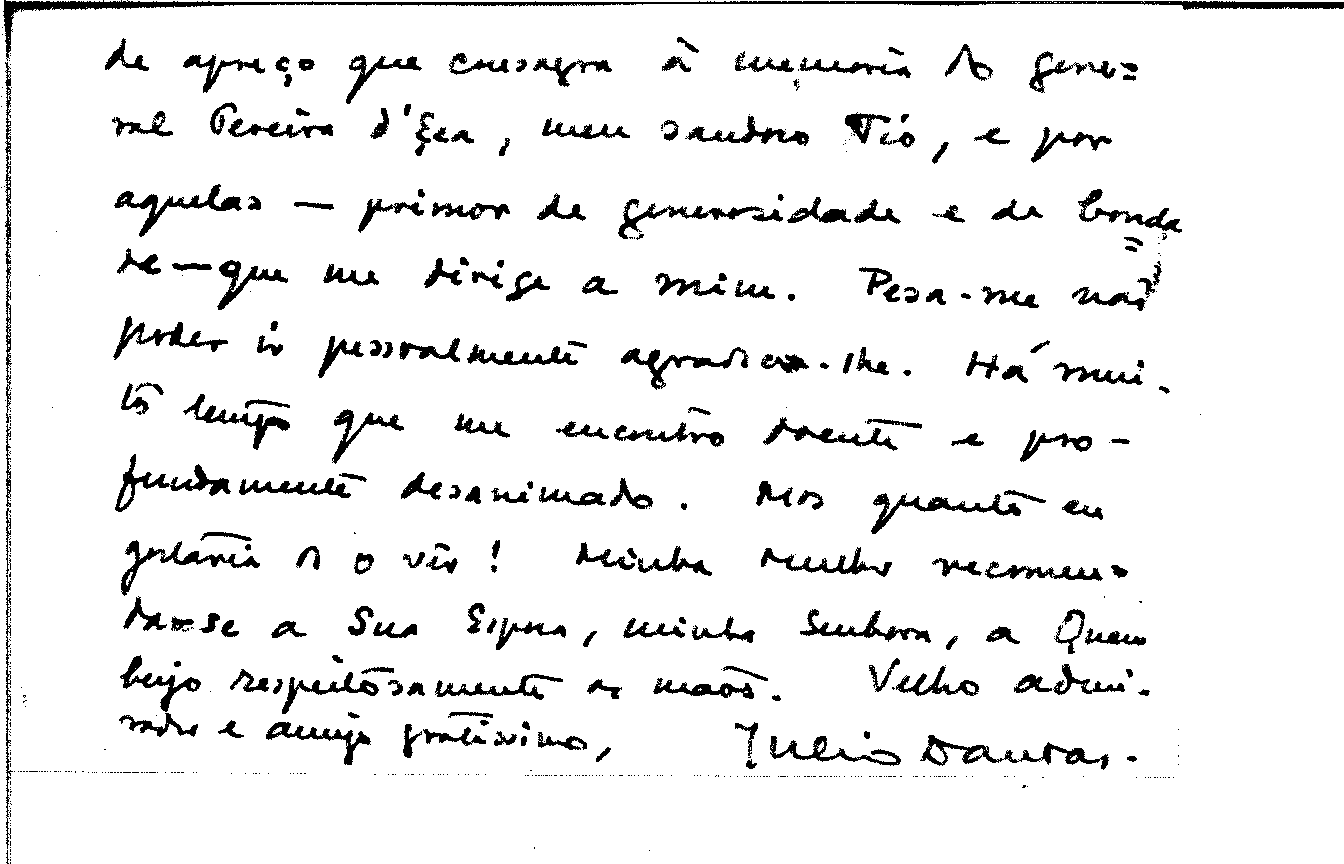 de apreço que consagra à memoria do gene=
ral Pereira d'Eça, meu saudoso Tio, e por
aquelas — primor de generosidade e de bonda
=
de — que me dirige a mim. Pesa-me não
poder ir pessoalmente agradecer-lhe. Há mui-
to tempo que me encontro doente e pro-
fundamente desanimado. Mas quanto eu
gostaria de o vêr! Minha Mulher recomen=
da-se a Sua Esposa, minha Senhora, a Quem
beijo respeitosamente as mãos. Velho admi-
rador e amigo gratissimo, Julio Dantas.